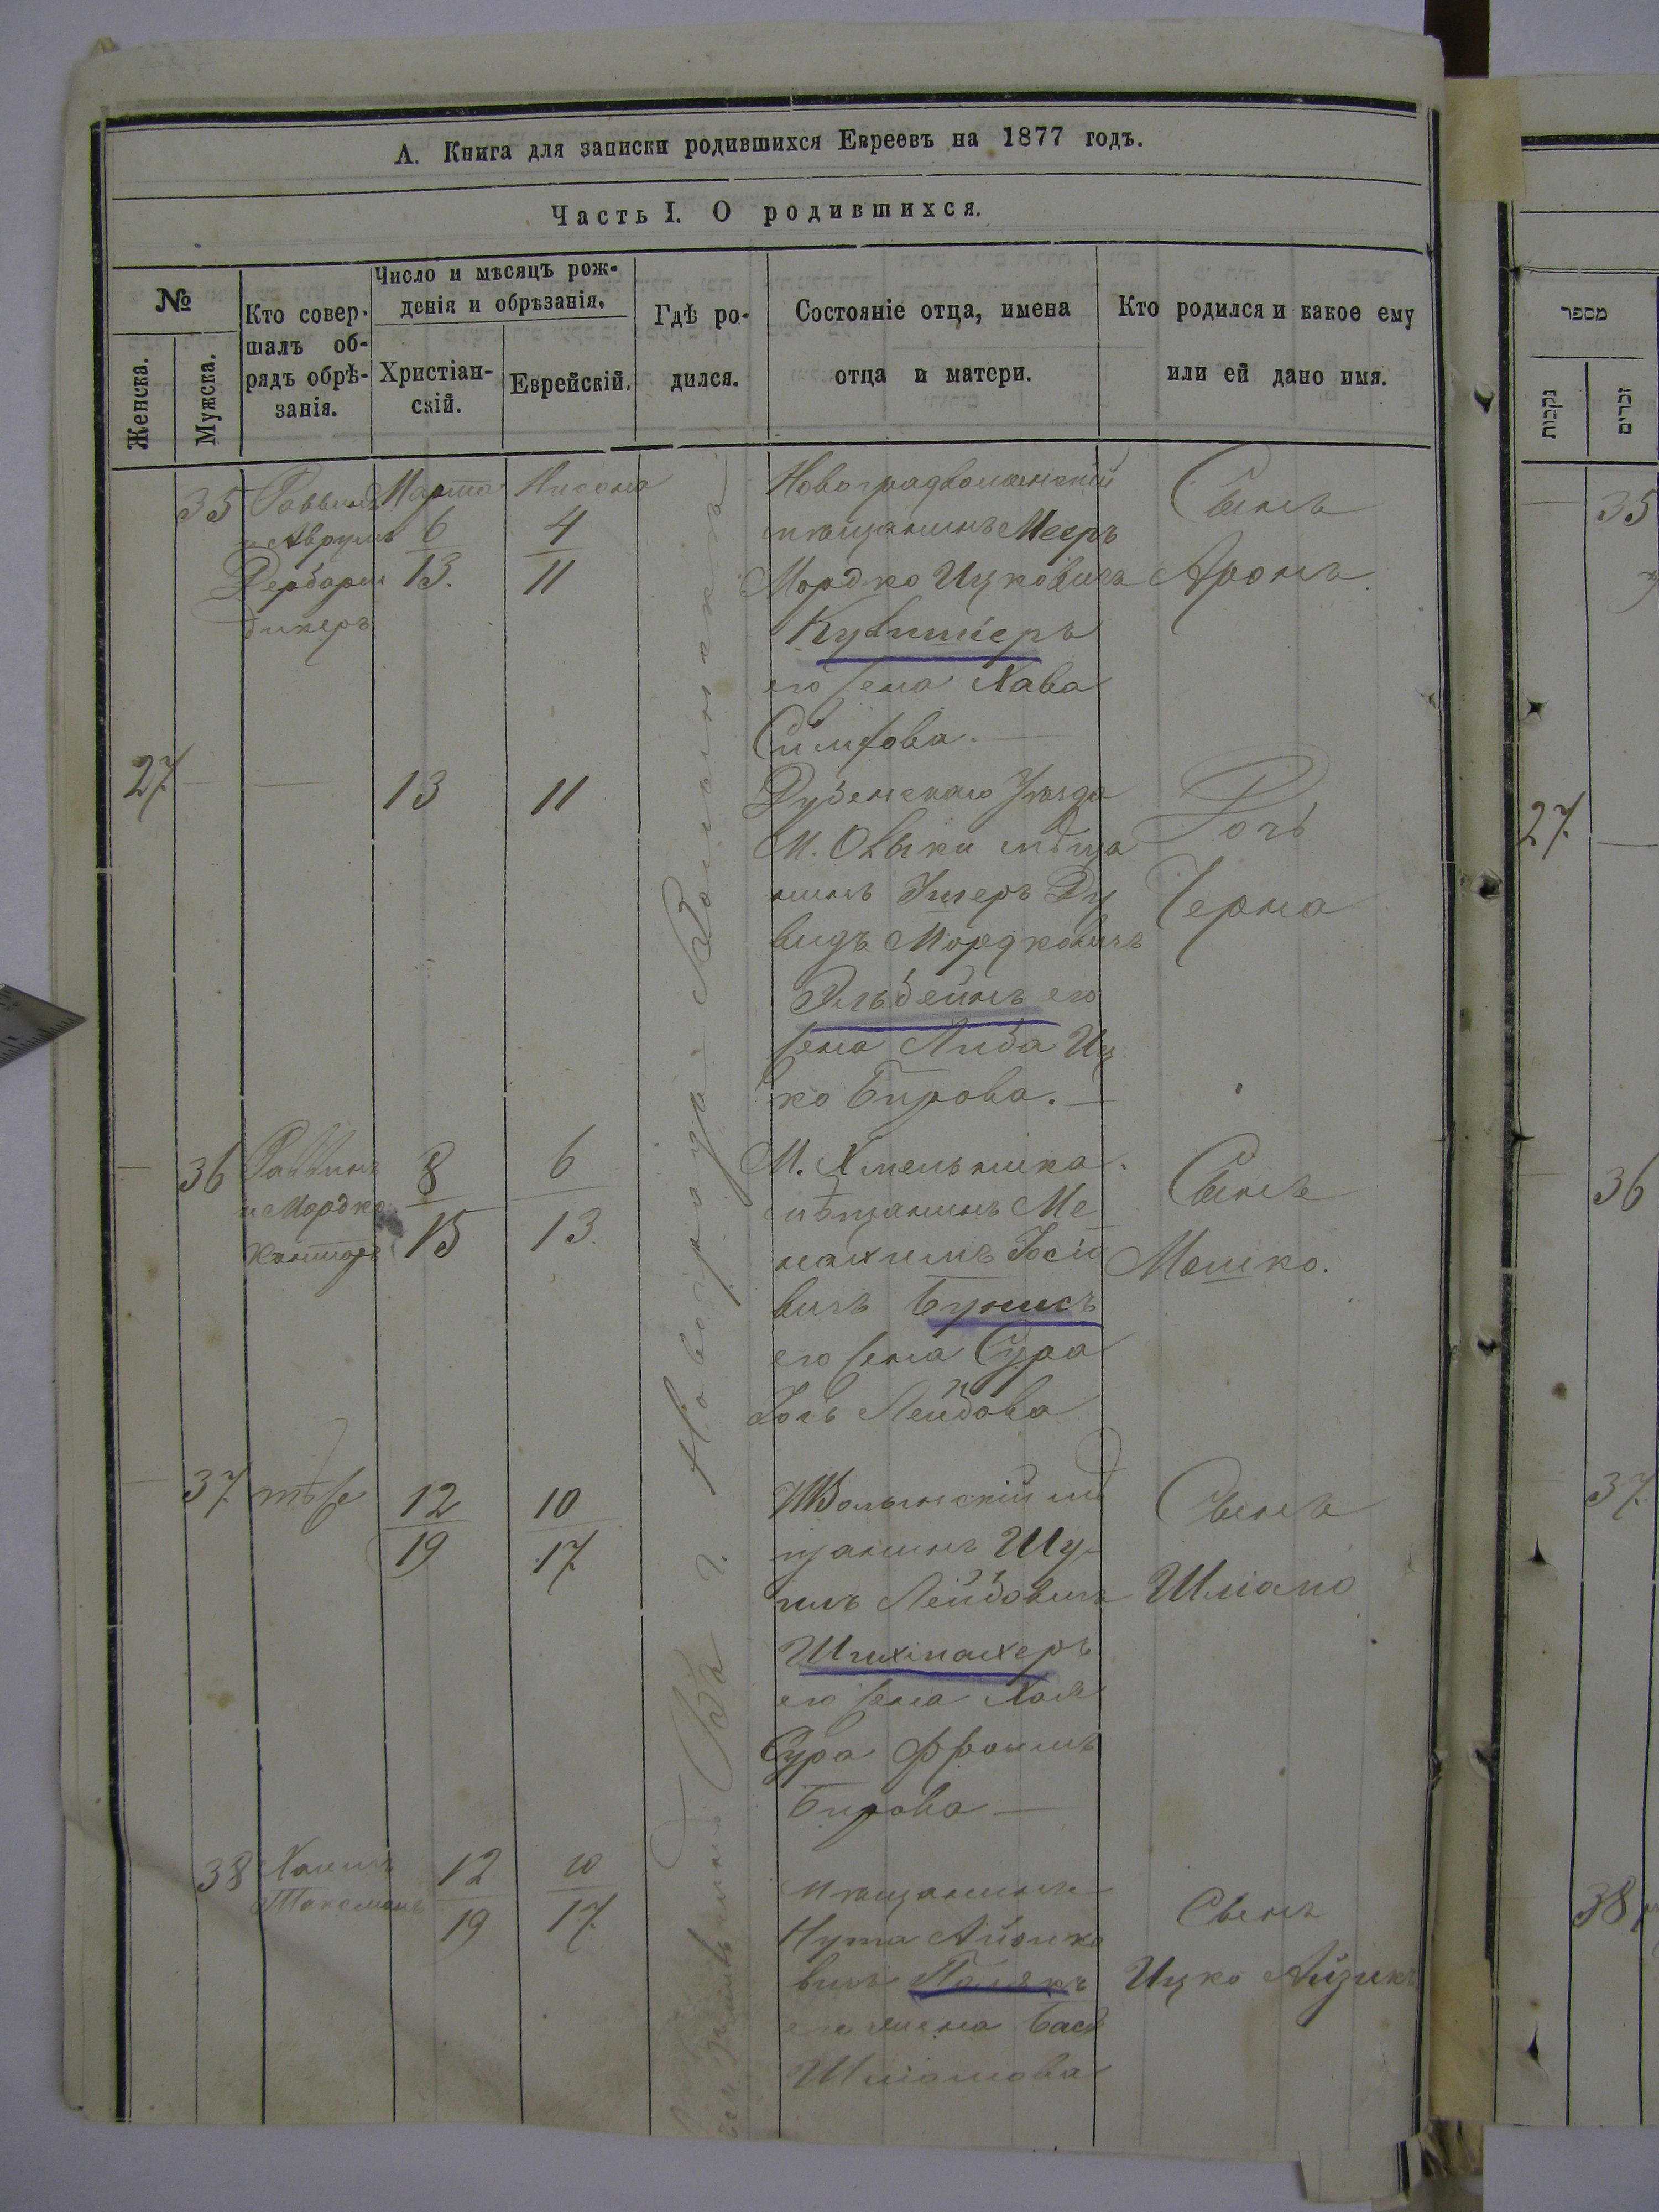 А. Книга для записки родившихся Евреевъ на 1877 годъ.
Часть I. О родившихся.
№
Женска.
Мужска.
Кто совер-
шалъ об-
рядъ обрѣ-
занія.
Число и мѣсяцъ рож-
денія и обрѣзанія.
Христіан-
скій.
Еврейскій.
Гдѣ ро-
дился.
Состояніе отца, имена
отца и матери.
Кто родился и какое ему
или ей дано имя.
Въ г. Новоградъ Волынскъ
35
Раввинъ
и Аврумъ
Дербарем
дикеръ
Марта
6
13.
Нисона
4
11
Новоградволынскій
мѣщанинъ Мееръ
Мордко Ицковичъ
его жена Хава
Сынъ
Аронъ.
27.
13
11
Дубенскаго Уѣзда
М. Олыки мѣща
нинъ Ушеръ Ду
видъ Мордковичъ
Эльбейнъ его
жена Либа Иц
ко Берова.
Дочь
Черна
36
Раввинъ
и Мордко
Канторъ
8
15
6
13.
М. Хмельника
мѣщанинъ Ме
нахимъ Іосіо
вичъ
его жена Сура
Лейбова
Сынъ
Мошко.
37.
тѣже
12
19
10
17.
НВолынскій мѣ
щанинъ Шу-
лимъ Лейбовичъ
Шихмахеръ
его жена Хая
Сура Фроимъ
Берова
Сынъ
Шліома
38
Хаимъ
Токсманъ
12
19
10
17.
мѣщанинъ
Нута Айзико
вичъ Полякъ
его жена Бася
Шліомова
Сынъ
Ицко Айзикъ
מספר
נקבות
זכרים
35
27.
36
37.
38